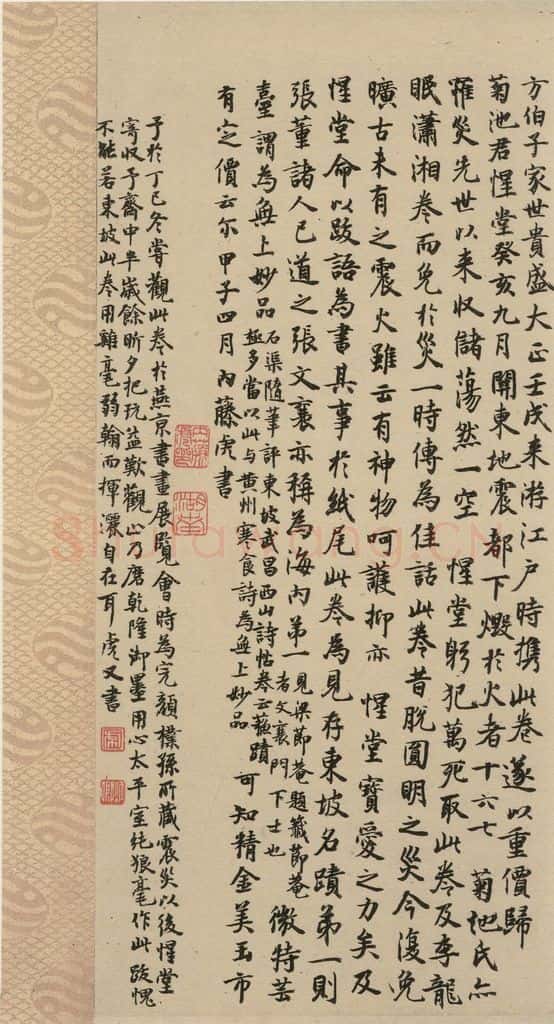 方伯子家世貴盛大正壬戌来游江戶時攜此卷遂以重價歸
菊池君惺堂癸亥九月關東地震都下燬於火者十六七菊池氏亦
罹災先世以来收儲蕩然一空惺堂躬犯萬死取此卷及李龍
眠瀟湘卷而免於災一時傳為佳話此卷昔脫圓明之災今復免
曠古未有之震火雖云有神物呵護抑亦惺堂寶愛之力矣及
惺堂命以跋語為書其事於紙尾此卷為見存東坡名蹟第一則
張董諸人已道之張文襄亦稱為海內第一見梁節菴題籤節菴者文襄門下士也微特芸
臺謂為無上妙品石渠隨筆評東坡武昌西山詩帖卷云蘇蹟極多當以此与黄州寒食詩為無上妙品可知精金美玉市
有定價云尔甲子四月內藤虎書
予於丁巳冬嘗觀此卷於燕京書畫展覽會時為完顏樸孫所藏震災以後惺堂
寄收予齋中半歲餘昕夕把玩益歎觀止乃磨乾隆御墨用心太平室純狼毫作此跋愧
不能若東坡此卷用雞毫弱翰而揮灑自在耳虎又書
ShuFaWang.CN